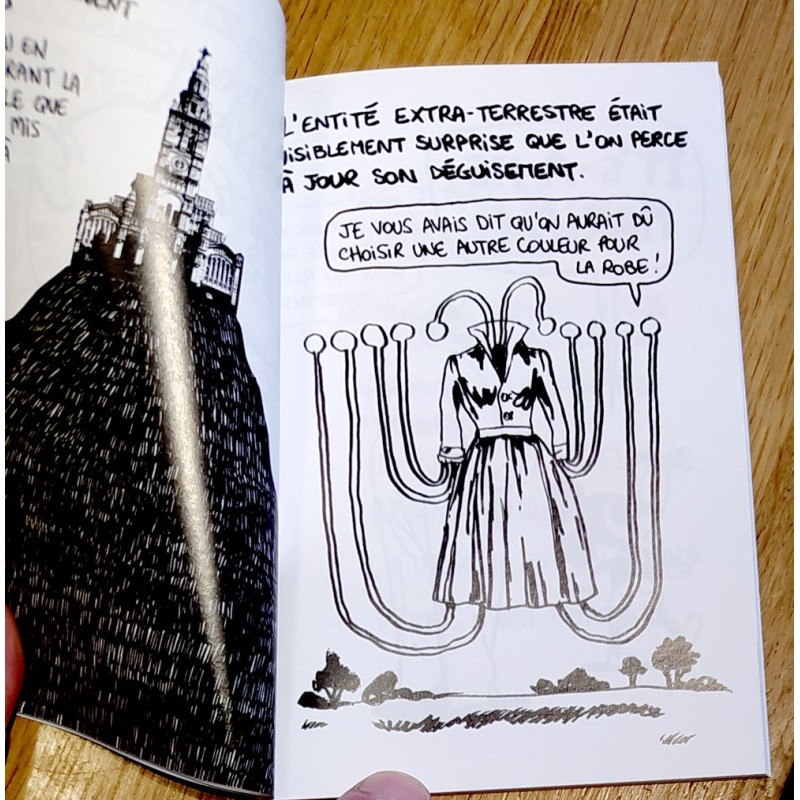 U EN
RANT LA
LE QUE
MIS
À
L'ENTITÉ EXTRA-TERRESTRE ÉTAIT
VISIBLEMENT SURPRISE QUE L'ON PERCE
À JOUR SON DÉGUISEMENT.
JE VOUS AVAIS DIT QU'ON AURAIT DÛ
CHOISIR UNE AUTRE COULEUR POUR
LA ROBE !